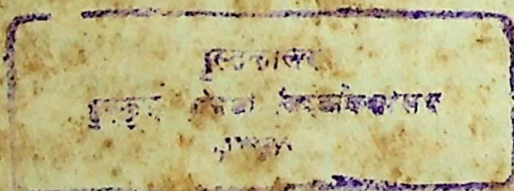 पुस्तकालय
गुरुकुल कांगड़ी विश्वविद्यालय